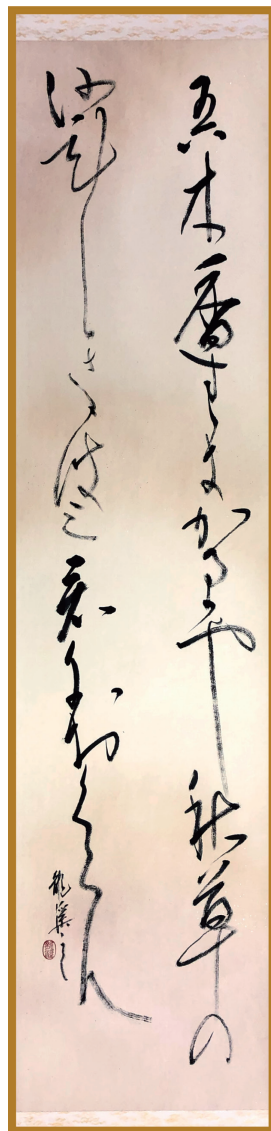 吾木香すゝきかるかや秋草の
さびしききはみ君におくらん